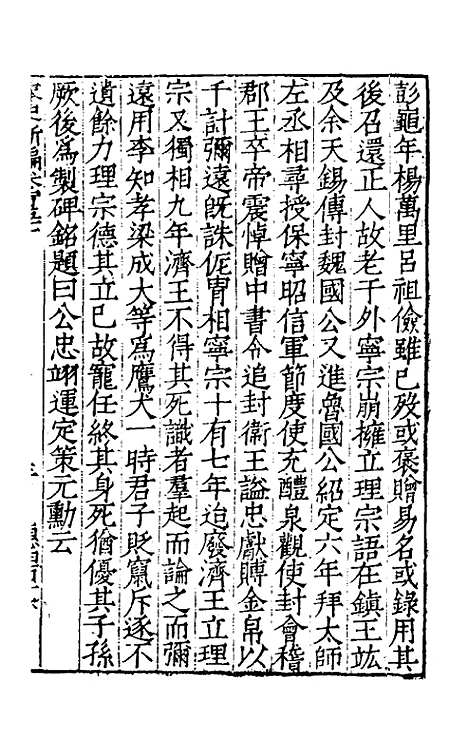 彭龜年楊萬里呂祖儉雖已歿或褒贈易名或錄用其
後召還正人故老于外寧宗崩擁立理宗語在鎮王竑
及余天錫傳封魏國公又進魯國公紹定六年拜太師
左丞相尋授保寧昭信軍節度使充醴泉觀使封會稽
郡王卒帝震悼贈中書令追封衛王謚忠獻賻金帛以
千計彌遠既誅侂胄相寧宗十有七年迨廢濟王立理
宗又獨相九年濟王不得其死識者羣起而論之而彌
遠用李知孝梁成大等爲鷹犬一時君子貶竄斥逐不
遺餘力理宗德其立已故寵任終其身死猶優其子孫
厥後爲製碑銘題曰公忠翊運定策元勳云
宋史新編卷百